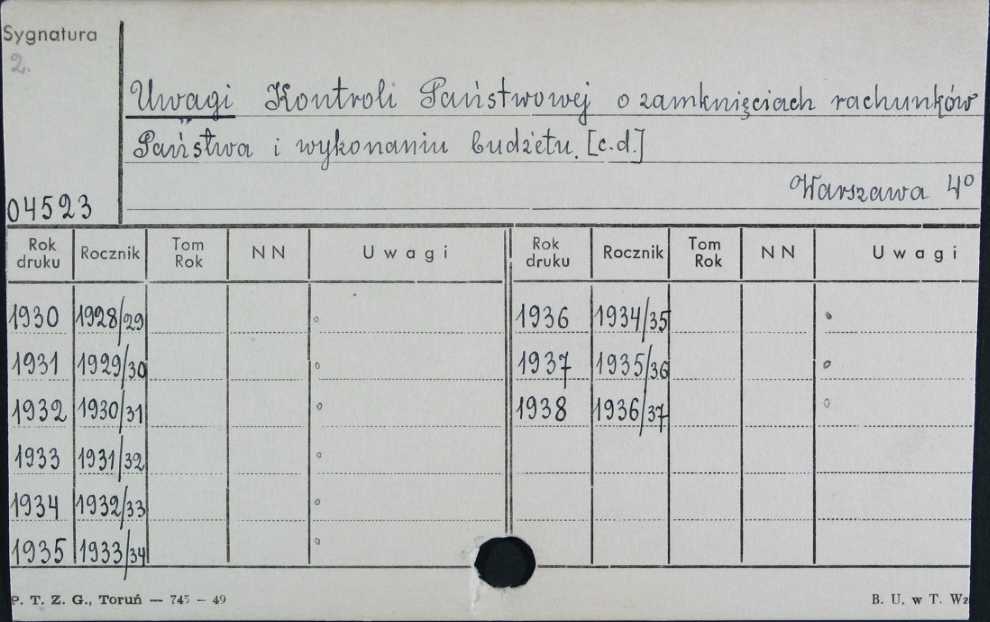 Sygnatura
2.
Uwagi Kontroli Państwowej o zamknięciach rachunków
Państwa i wykonaniu budżetu. [c.d.]
Warszawa 4º
04523
Rok druku Rocznik Tom Rok NN Uwagi Rok druku Rocznik Tom Rok NN Uwagi
1930 1928/29 1936 1934/35
1931 1929/30 1937 1935/36
1932 1930/31 1938 1936/37
1933 1931/32
1934 1932/33
1935 1933/34
P. T. Z. G., Toruń — 745 — 49 B. U. w T. Wz